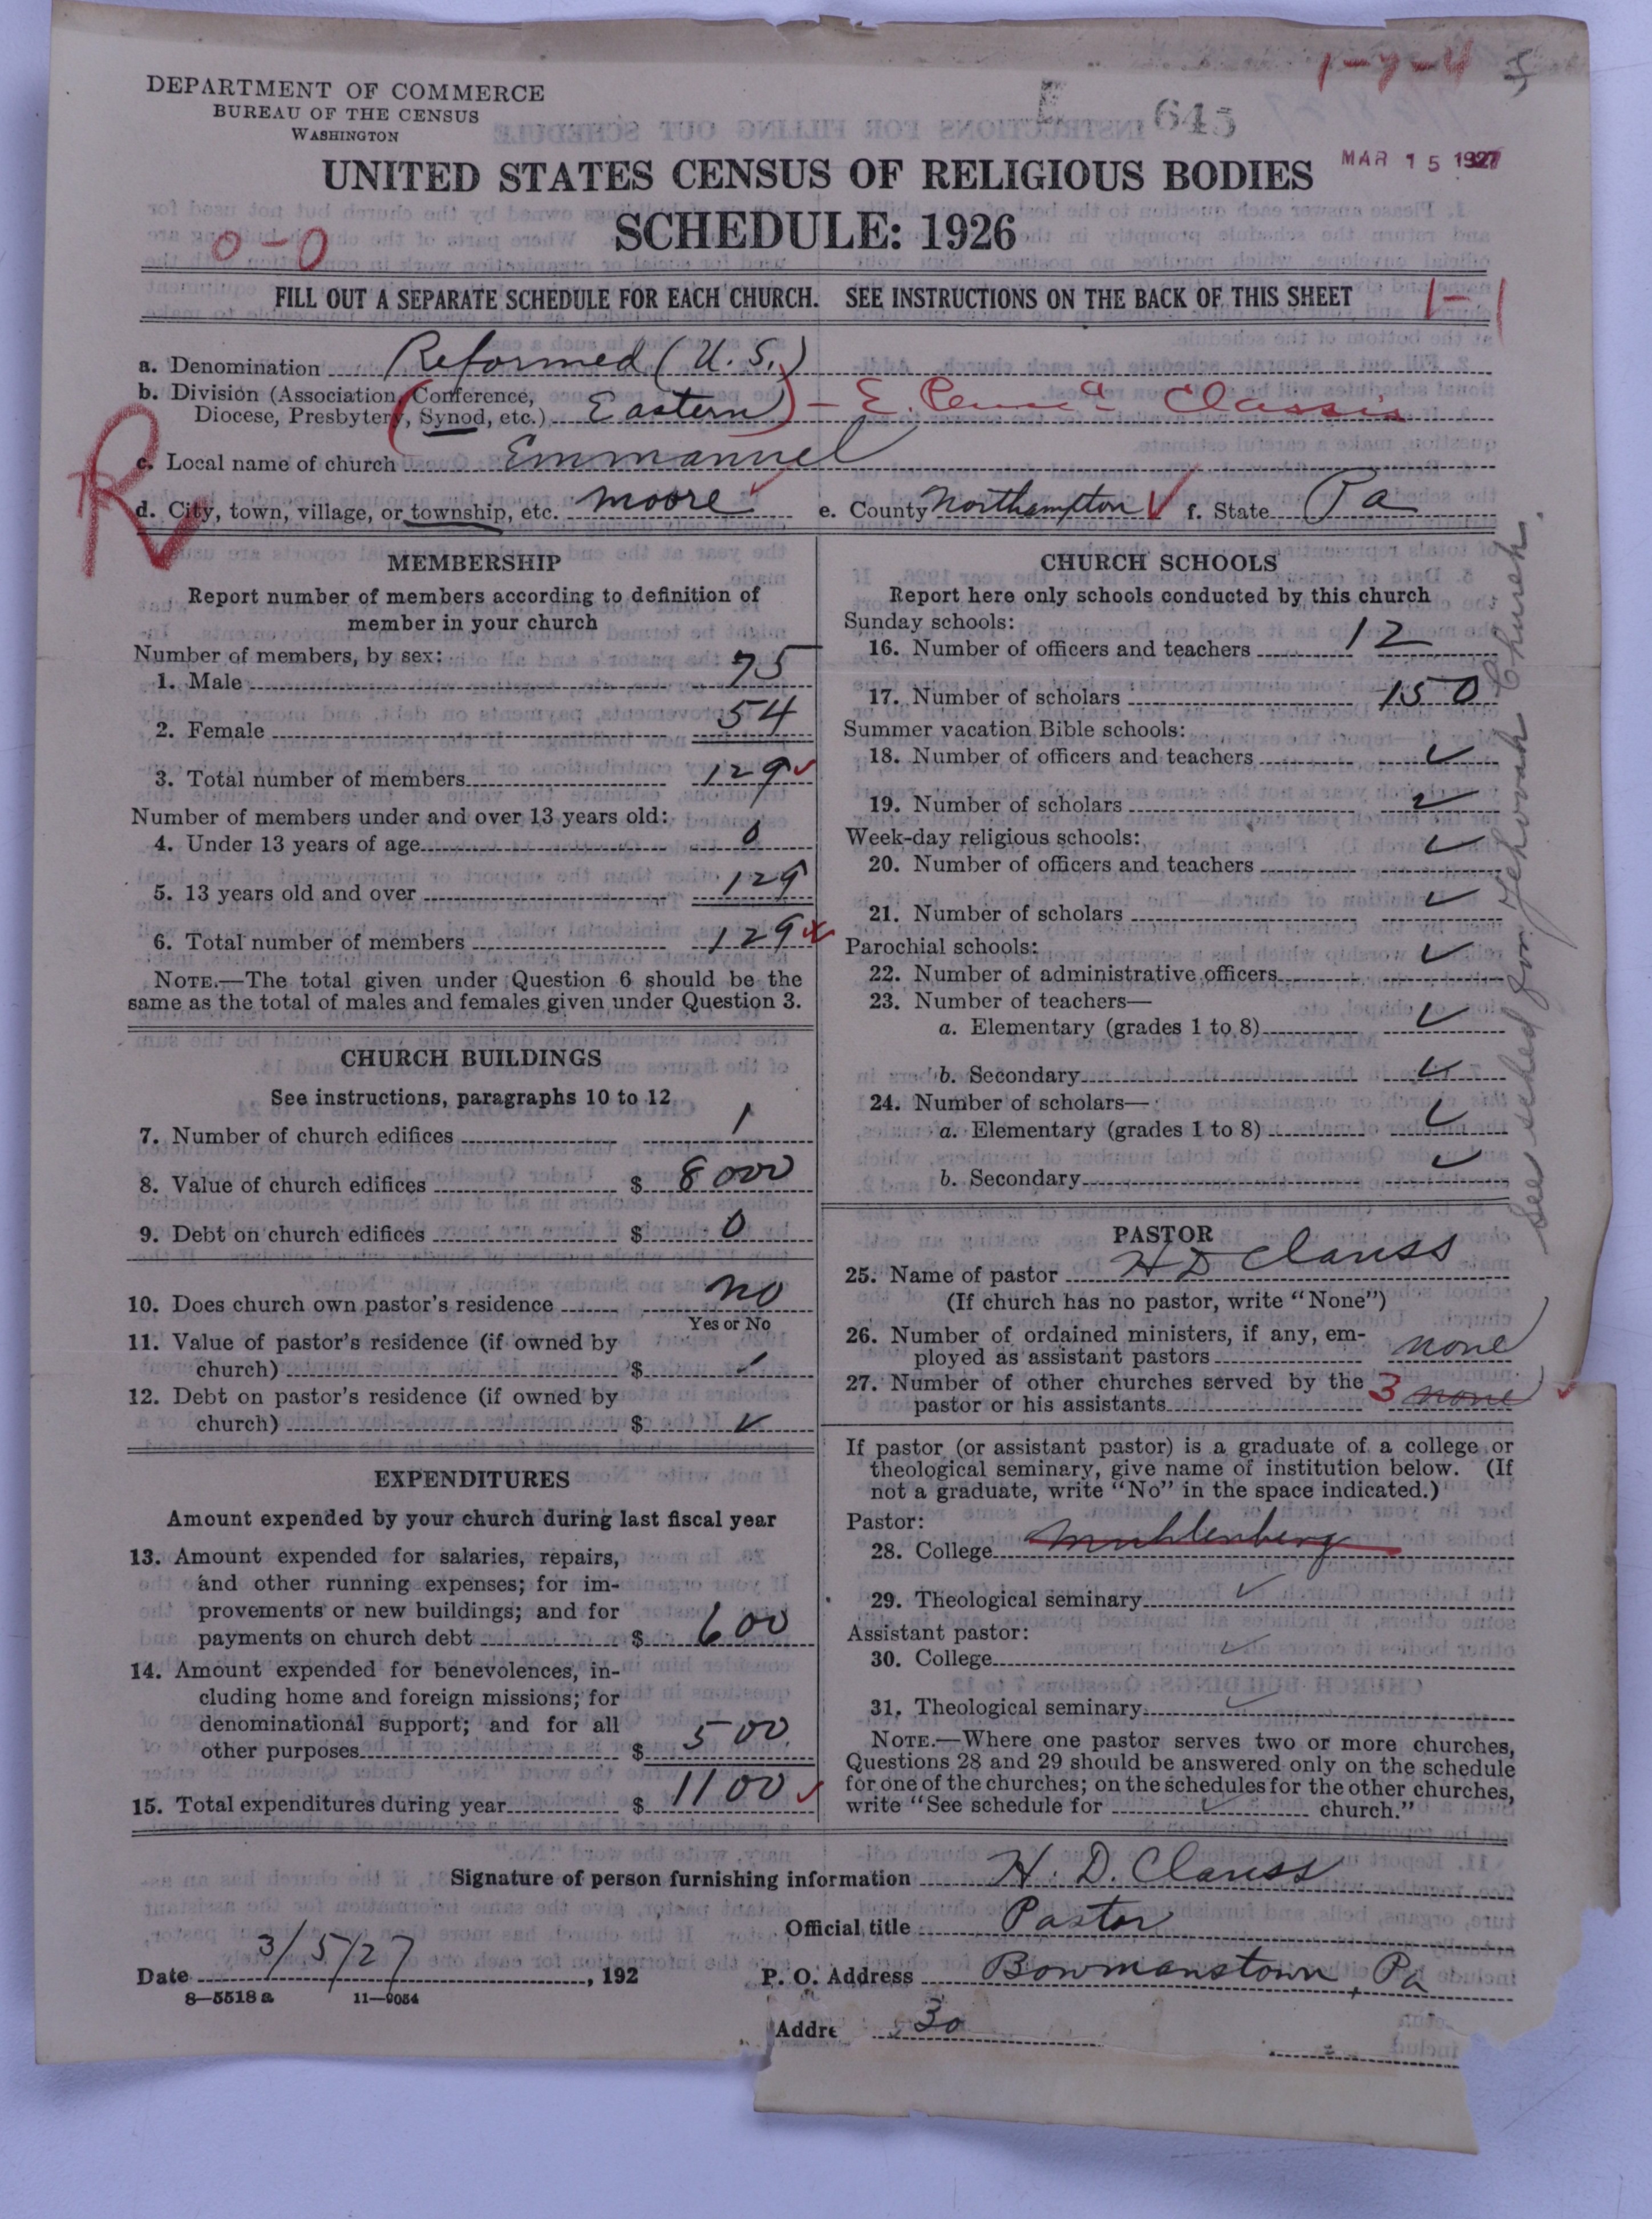 1-7-4
DEPARTMENT OF COMMERCE
BUREAU OF THE CENSUS
WASHINGTON
E 645
MAR 15 1927
UNITED STATES CENSUS OF RELIGIOUS BODIES
SCHEDULE: 1926
0-0
FILL OUT A SEPARATE SCHEDULE FOR EACH CHURCH. SEE INSTRUCTIONS ON THE BACK OF THIS SHEET
1-1
R
a. Denomination Reformed (U.S.)
b. Division (Association, Conference,
Diocese, Presbytery, Synod, etc.) (Eastern) - E Penn'a Classis
c. Local name of church Emmanuel
d. City, town, village, or township, etc. Moore e. County Northampton f. State Pa
MEMBERSHIP
Report number of members according to definition of
member in your church
Number of members, by sex:
1. Male 75
2. Female 54
3. Total number of members 129 ✓
Number of members under and over 13 years old:
4. Under 13 years of age 0
5. 13 years old and over 129
6. Total number of members 129
NOTE.—The total given under Question 6 should be the
same as the total of males and females given under Question 3.
CHURCH BUILDINGS
See instructions, paragraphs 10 to 12
7. Number of church edifices 1
8. Value of church edifices $ 8000
9. Debt on church edifices $ 0
10. Does church own pastor's residence no
Yes or No
11. Value of pastor's residence (if owned by
church) $ ✓
12. Debt on pastor's residence (if owned by
church) $ ✓
EXPENDITURES
Amount expended by your church during last fiscal year
13. Amount expended for salaries, repairs,
and other running expenses; for im-
provements or new buildings; and for
payments on church debt $ 600
14. Amount expended for benevolences, in-
cluding home and foreign missions; for
denominational support; and for all
other purposes $ 500
15. Total expenditures during year $ 1100 ✓
CHURCH SCHOOLS
Report here only schools conducted by this church
Sunday schools:
16. Number of officers and teachers 12
17. Number of scholars 150
Summer vacation Bible schools:
18. Number of officers and teachers ✓
19. Number of scholars ✓
Week-day religious schools:
20. Number of officers and teachers ✓
21. Number of scholars ✓
Parochial schools:
22. Number of administrative officers ✓
23. Number of teachers—
a. Elementary (grades 1 to 8) ✓
b. Secondary ✓
24. Number of scholars—
a. Elementary (grades 1 to 8) ✓
b. Secondary ✓
PASTOR
25. Name of pastor H D Clauss
(If church has no pastor, write "None")
26. Number of ordained ministers, if any, em-
ployed as assistant pastors none
27. Number of other churches served by the
pastor or his assistants 3 none
If pastor (or assistant pastor) is a graduate of a college or
theological seminary, give name of institution below. (If
not a graduate, write "No" in the space indicated.)
Pastor:
28. College Muhlenberg
29. Theological seminary ✓
Assistant pastor:
30. College ✓
31. Theological seminary ✓
NOTE.—Where one pastor serves two or more churches,
Questions 28 and 29 should be answered only on the schedule
for one of the churches; on the schedules for the other churches,
write "See schedule for ✓ church."
See sched for Jehovah Church.
Signature of person furnishing information H. D. Clauss
Official title Pastor
Date 3/5/27, 192
P. O. Address Bowmanstown, Pa
8-5518 a 11-9054
Addre 30